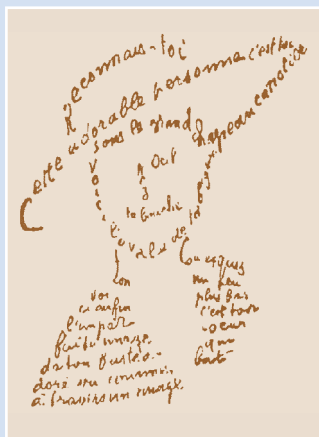 Reconnais-toi
Cette adorable personne c'est toi
sous le grand chapeau canotier
Oeil
Nez
la bouche
Voici l'ovale de ta figure
Ton Cou exquis
Voi
ci enfin
l'impar
faite image
de ton buste a
doré vu comme
à travers un nuage
un peu
plus bas
c'est ton
coeur
qui
bat